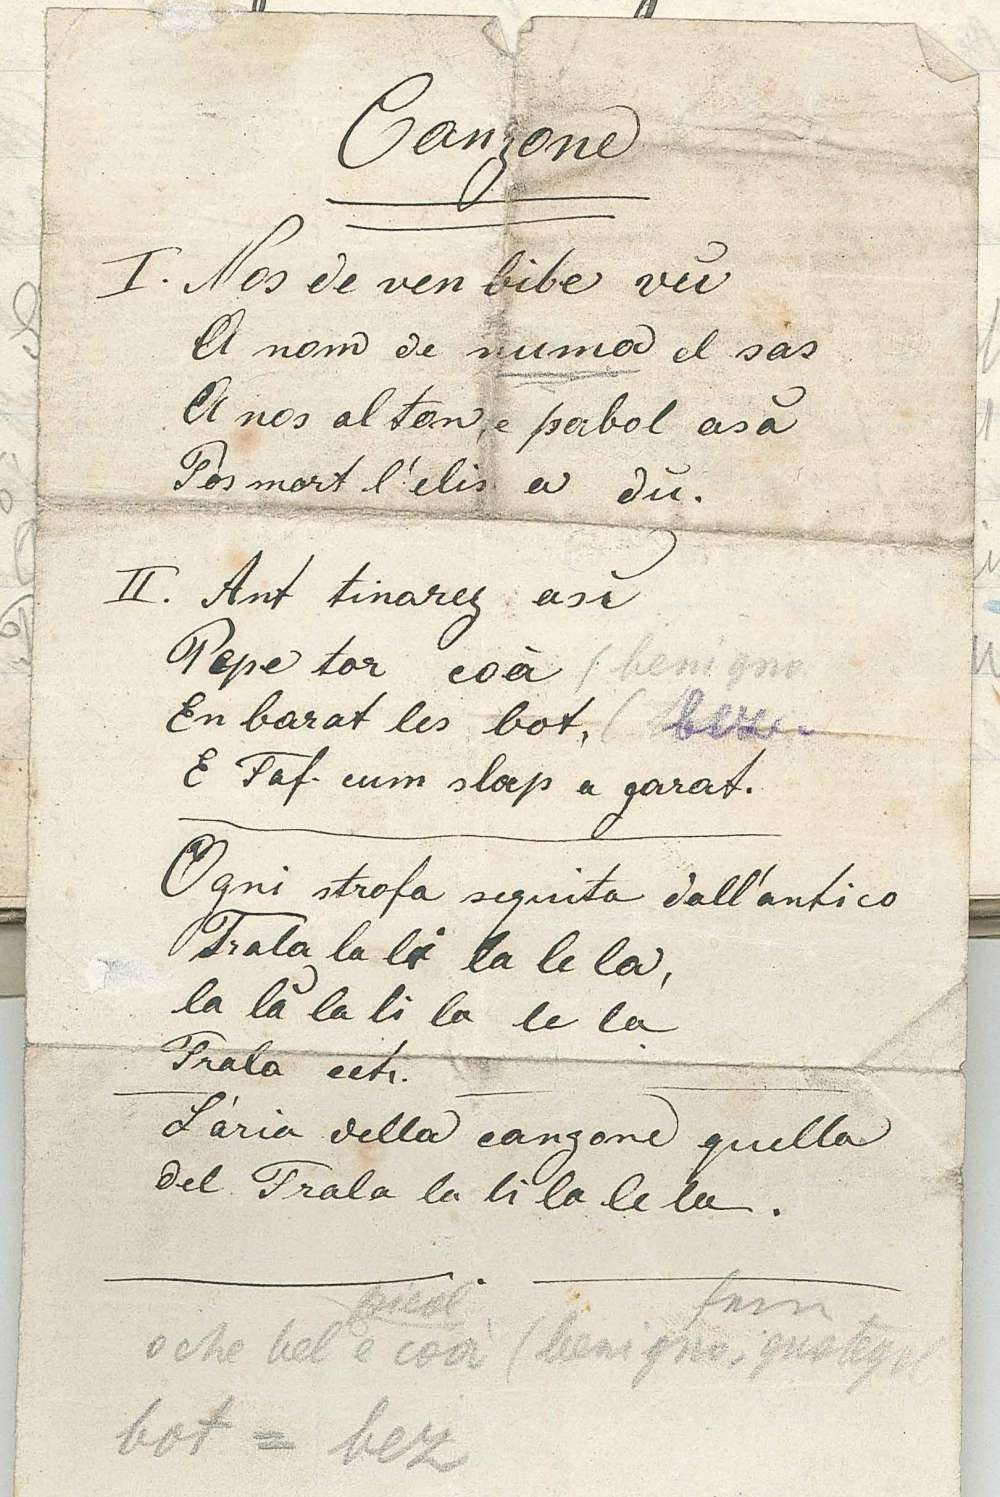 Canzone
I. Nos de ven bibe vĕŭ
A nom de numa el sas
A nos al ton, e pabol asă
Pos mort l'elis a dŭ.
II. Ant tinarez asĭ
Pepe tor coà (benigno
En barat les bot, ( bez.
E Taf cum slap a garat.
Ogni strofa seguita dall'antico
Trala la li la le la,
la là la li la le la
Trala ect.
L'aria della canzone quella
del Trala la li la le la.
picol
o che bel è coà (benigno,
bot = bez